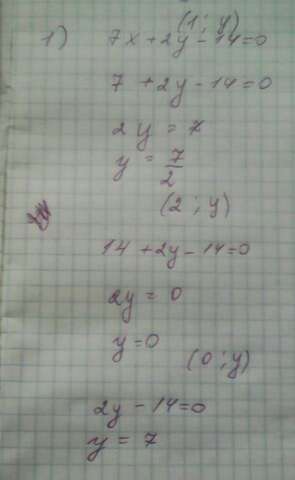 (1 ; y)
1) 7x + 2y - 14 = 0
7 + 2y - 14 = 0
2y = 7
y = 7/2
(2 ; y)
14 + 2y - 14 = 0
2y = 0
y = 0
(0 ; y)
2y - 14 = 0
y = 7